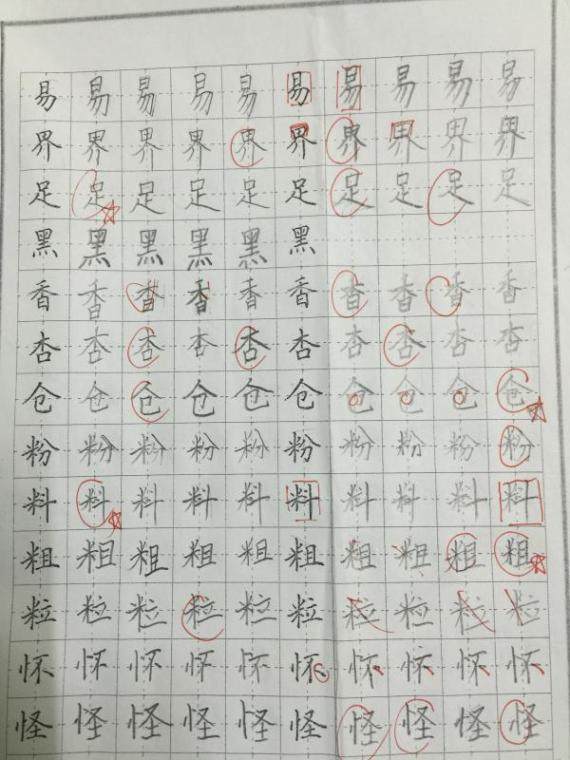 易易易易易易易易易易
界界界界界界界界界界
足足足足足足足足足足
黑黑黑黑黑黑
香香香香香香香香香香
杏杏杏杏杏杏杏杏杏杏
仓仓仓仓仓仓仓仓仓仓
粉粉粉粉粉粉粉粉粉粉
料料料料料料料料料料
粗粗粗粗粗粗粗粗粗粗
粒粒粒粒粒粒粒粒粒粒
怀怀怀怀怀怀怀怀怀怀
怪怪怪怪怪怪怪怪怪怪